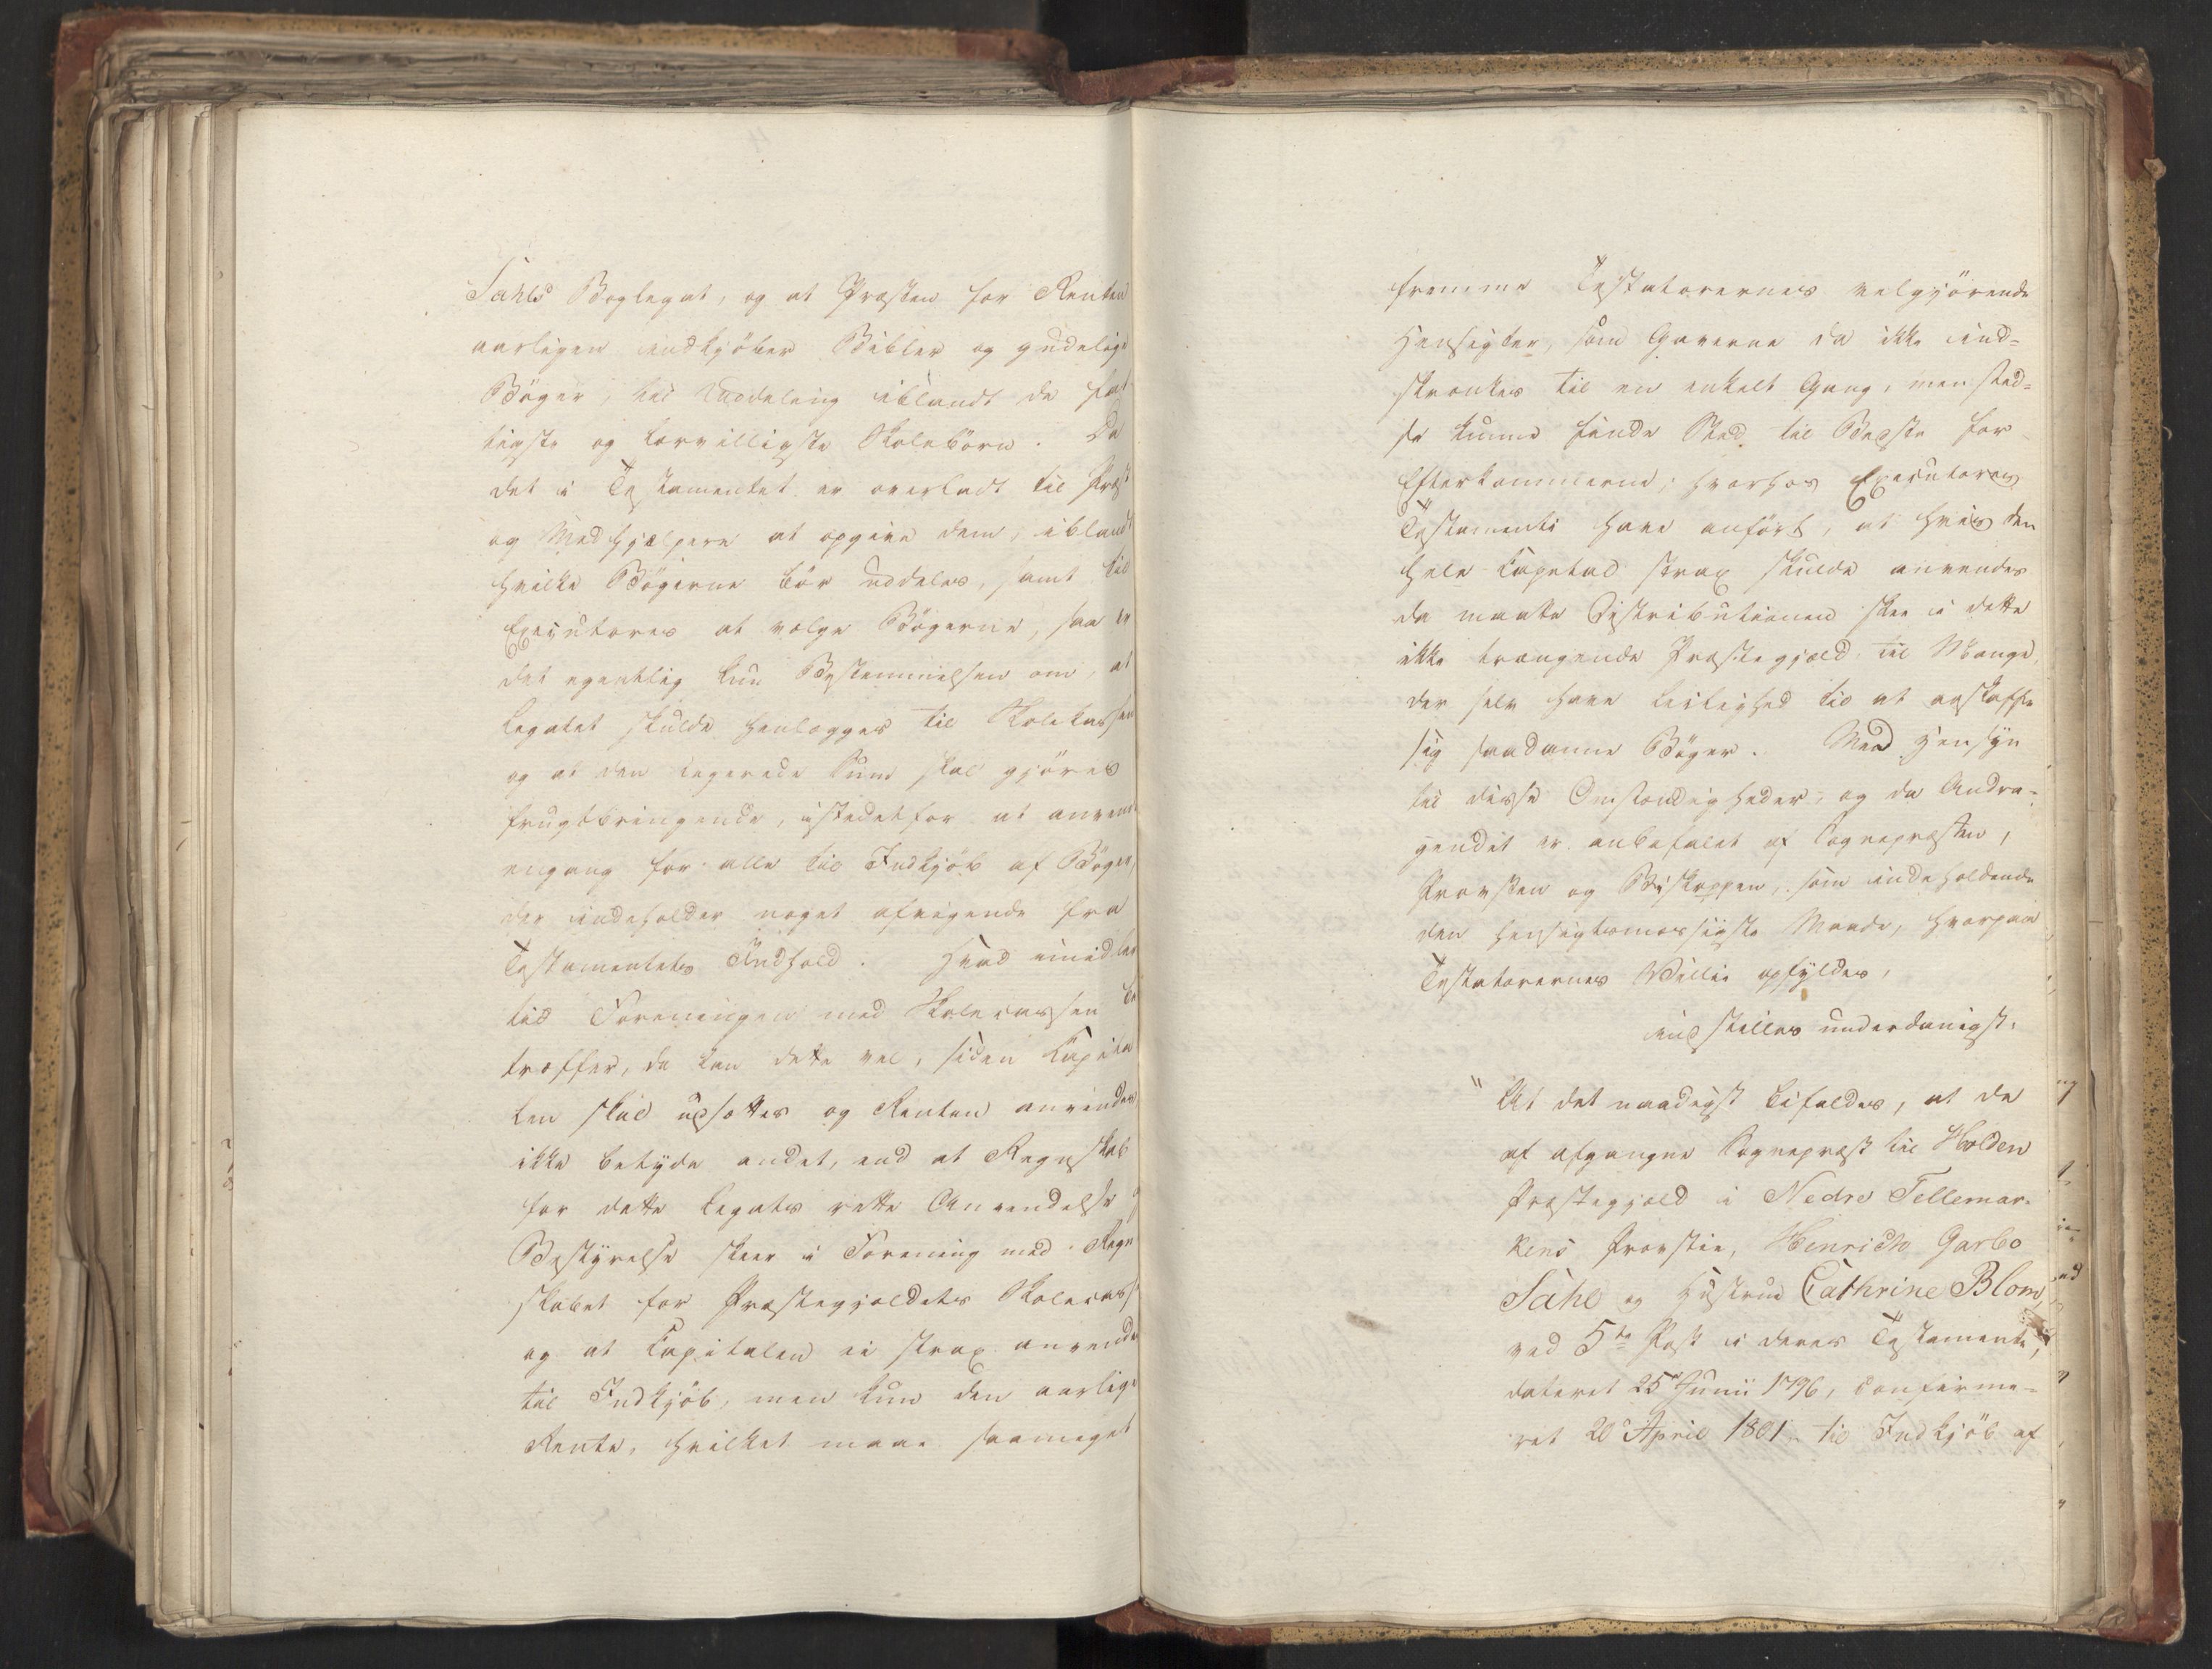 Sahls Boglegat, og at Præsten for Renten
aarligen indkjöber Bibler og gudelige
Böger, til Uddeling iblandt de fat
tigste og lærvilligste Skolebörn. Da
det i Testamentet er overladt til Præst
og Medhjælpere at opgive dem, iblandt
hvilke Bögerne bör uddeles, samt til
Executores at vælge Bögerne, saa er
det egentlig kun Bestemmelsen om, at
Legatet skulde henlægges til Skolekassen
og at den legerede Sum skal gjöres
frugtbringende, istedetfor at anvend
engang for alle til Indkjöb af Böger,
der indeholder noget afvigende fra
Testamentets Indhold. Hvad imidler
tid Foreningen med Skolecassen be
træffer, da kan dette vel, siden Capita
len skal udsættes og Renten anvendes,
ikke betyde andet, end at Regnskab
for dette Legats rette Anvendelse og
Bestyrelse skeer i Forening med Regn
skabet for Præstegjeldets Skolecasse
og at Capitalen ei strax anvendes
til Indkjöb, men kun den aarlige
Rente, hvilket maae saameget
fremme Testatorernes velgjörende
Hensigter, som Gaverne da ikke ind-
skrænkes til en enkelt Gang, men sted-
se kunne finde Sted til Bedste for
Efterkommerne; hvorhos Executores
Testamenti have anfört, at hvis den
hele Capital strax skulde anvendes
da maatte Distributionen skee i dette
ikke trængende Præstegjæld til Mange,
der selv have Leilighed til at anskaffe
sig saadanne Böger. Med Hensyn
til disse Omstændigheder, og da Andra-
gendet er anbefalet af Sognepræsten,
Provsten og Biskoppen, som indeholdende
den hensigtsmæssigste Maade, hvorpaa
Testatorernes Villie opfyldes,
indstilles underdanigst:
"At det naadigst bifaldes, at de
af afgangne Sognepræst til Holden
Præstegjeld i Nedre Tellemar-
kens Provstie, Henrich Garbo
Sahl og Hustrue Cathrine Blom,
ved 5te Post i deres Testamente,
dateret 25 Junii 1796, confirme-
ret 20 April 1801 til Indkjöb af